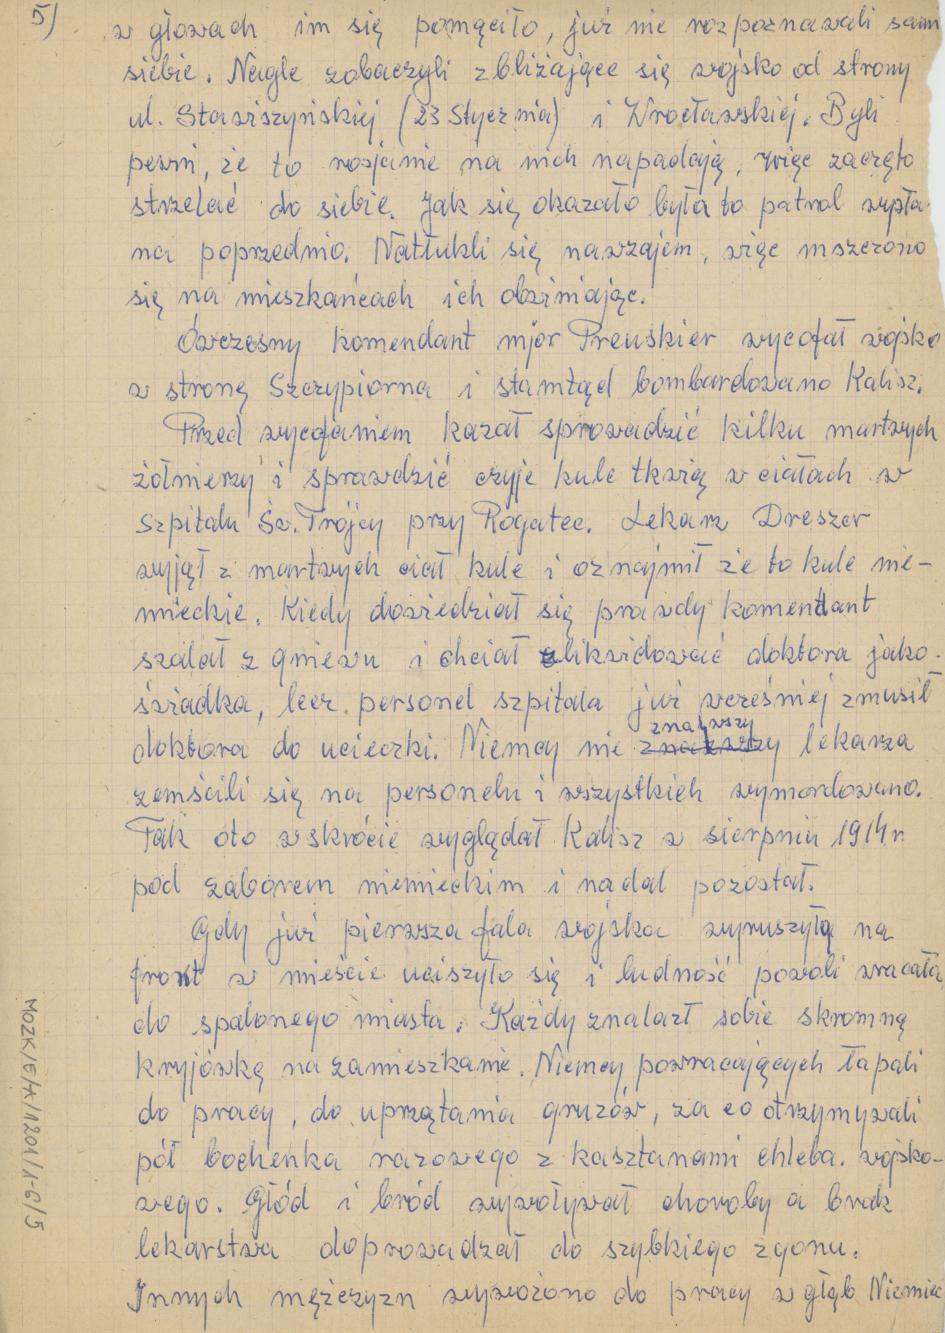 5)
w głowach im się pomąciło, już nie rozpoznawali sami
siebie. Nagle zobaczyli zbliżające się wojsko od strony
ul. Stawiszyńskiej (23 Stycznia) i Wrocławskiej. Byli
pewni, że to rosjanie na nich napadają, więc zaczęto
strzelać do siebie. Jak się okazało była to patrol wysła-
na poprzednio. Natłukli się nawzajem, więc mszczono
się na mieszkańcach ich obwiniając.
Ówczesny komendant mjor Preuskier wycofał wojsko
w stronę Szczypiorna i stamtąd bombardowano Kalisz.
Przed wycofaniem kazał sprowadzić kilku martwych
żołnierzy i sprawdzić czyje kule tkwią w ciałach w
szpitalu Św. Trójcy przy Rogatce. Lekarz Dreszer
wyjął z martwych ciał kule i oznajmił że to kule nie-
mieckie. Kiedy dowiedział się prawdy komendant
szalał z gniewu i chciał zlikwidować doktora jako
świadka, lecz personel szpitala już wcześniej zmusił
doktora do ucieczki. Niemcy nie znalazwszy lekarza
zemścili się na personelu i wszystkich wymordowano.
Tak oto w skrócie wyglądał Kalisz w sierpniu 1914 r.
pod zaborem niemieckim i nadal pozostał.
Gdy już pierwsza fala wojska wyruszyła na
front w mieście uciszyło się i ludność powoli wracała
do spalonego miasta. Każdy znalazł sobie skromną
kryjówkę na zamieszkanie. Niemcy powracających łapali
do pracy, do uprzątania gruzów, za co otrzymywali
pół bochenka razowego z kasztanami chleba wojsko-
wego. Głód i bród wywoływał choroby a brak
lekarstwa doprowadzał do szybkiego zgonu.
Innych mężczyzn wywożono do pracy w głąb Niemiec
MOZK/E/A/1201/1-6/5